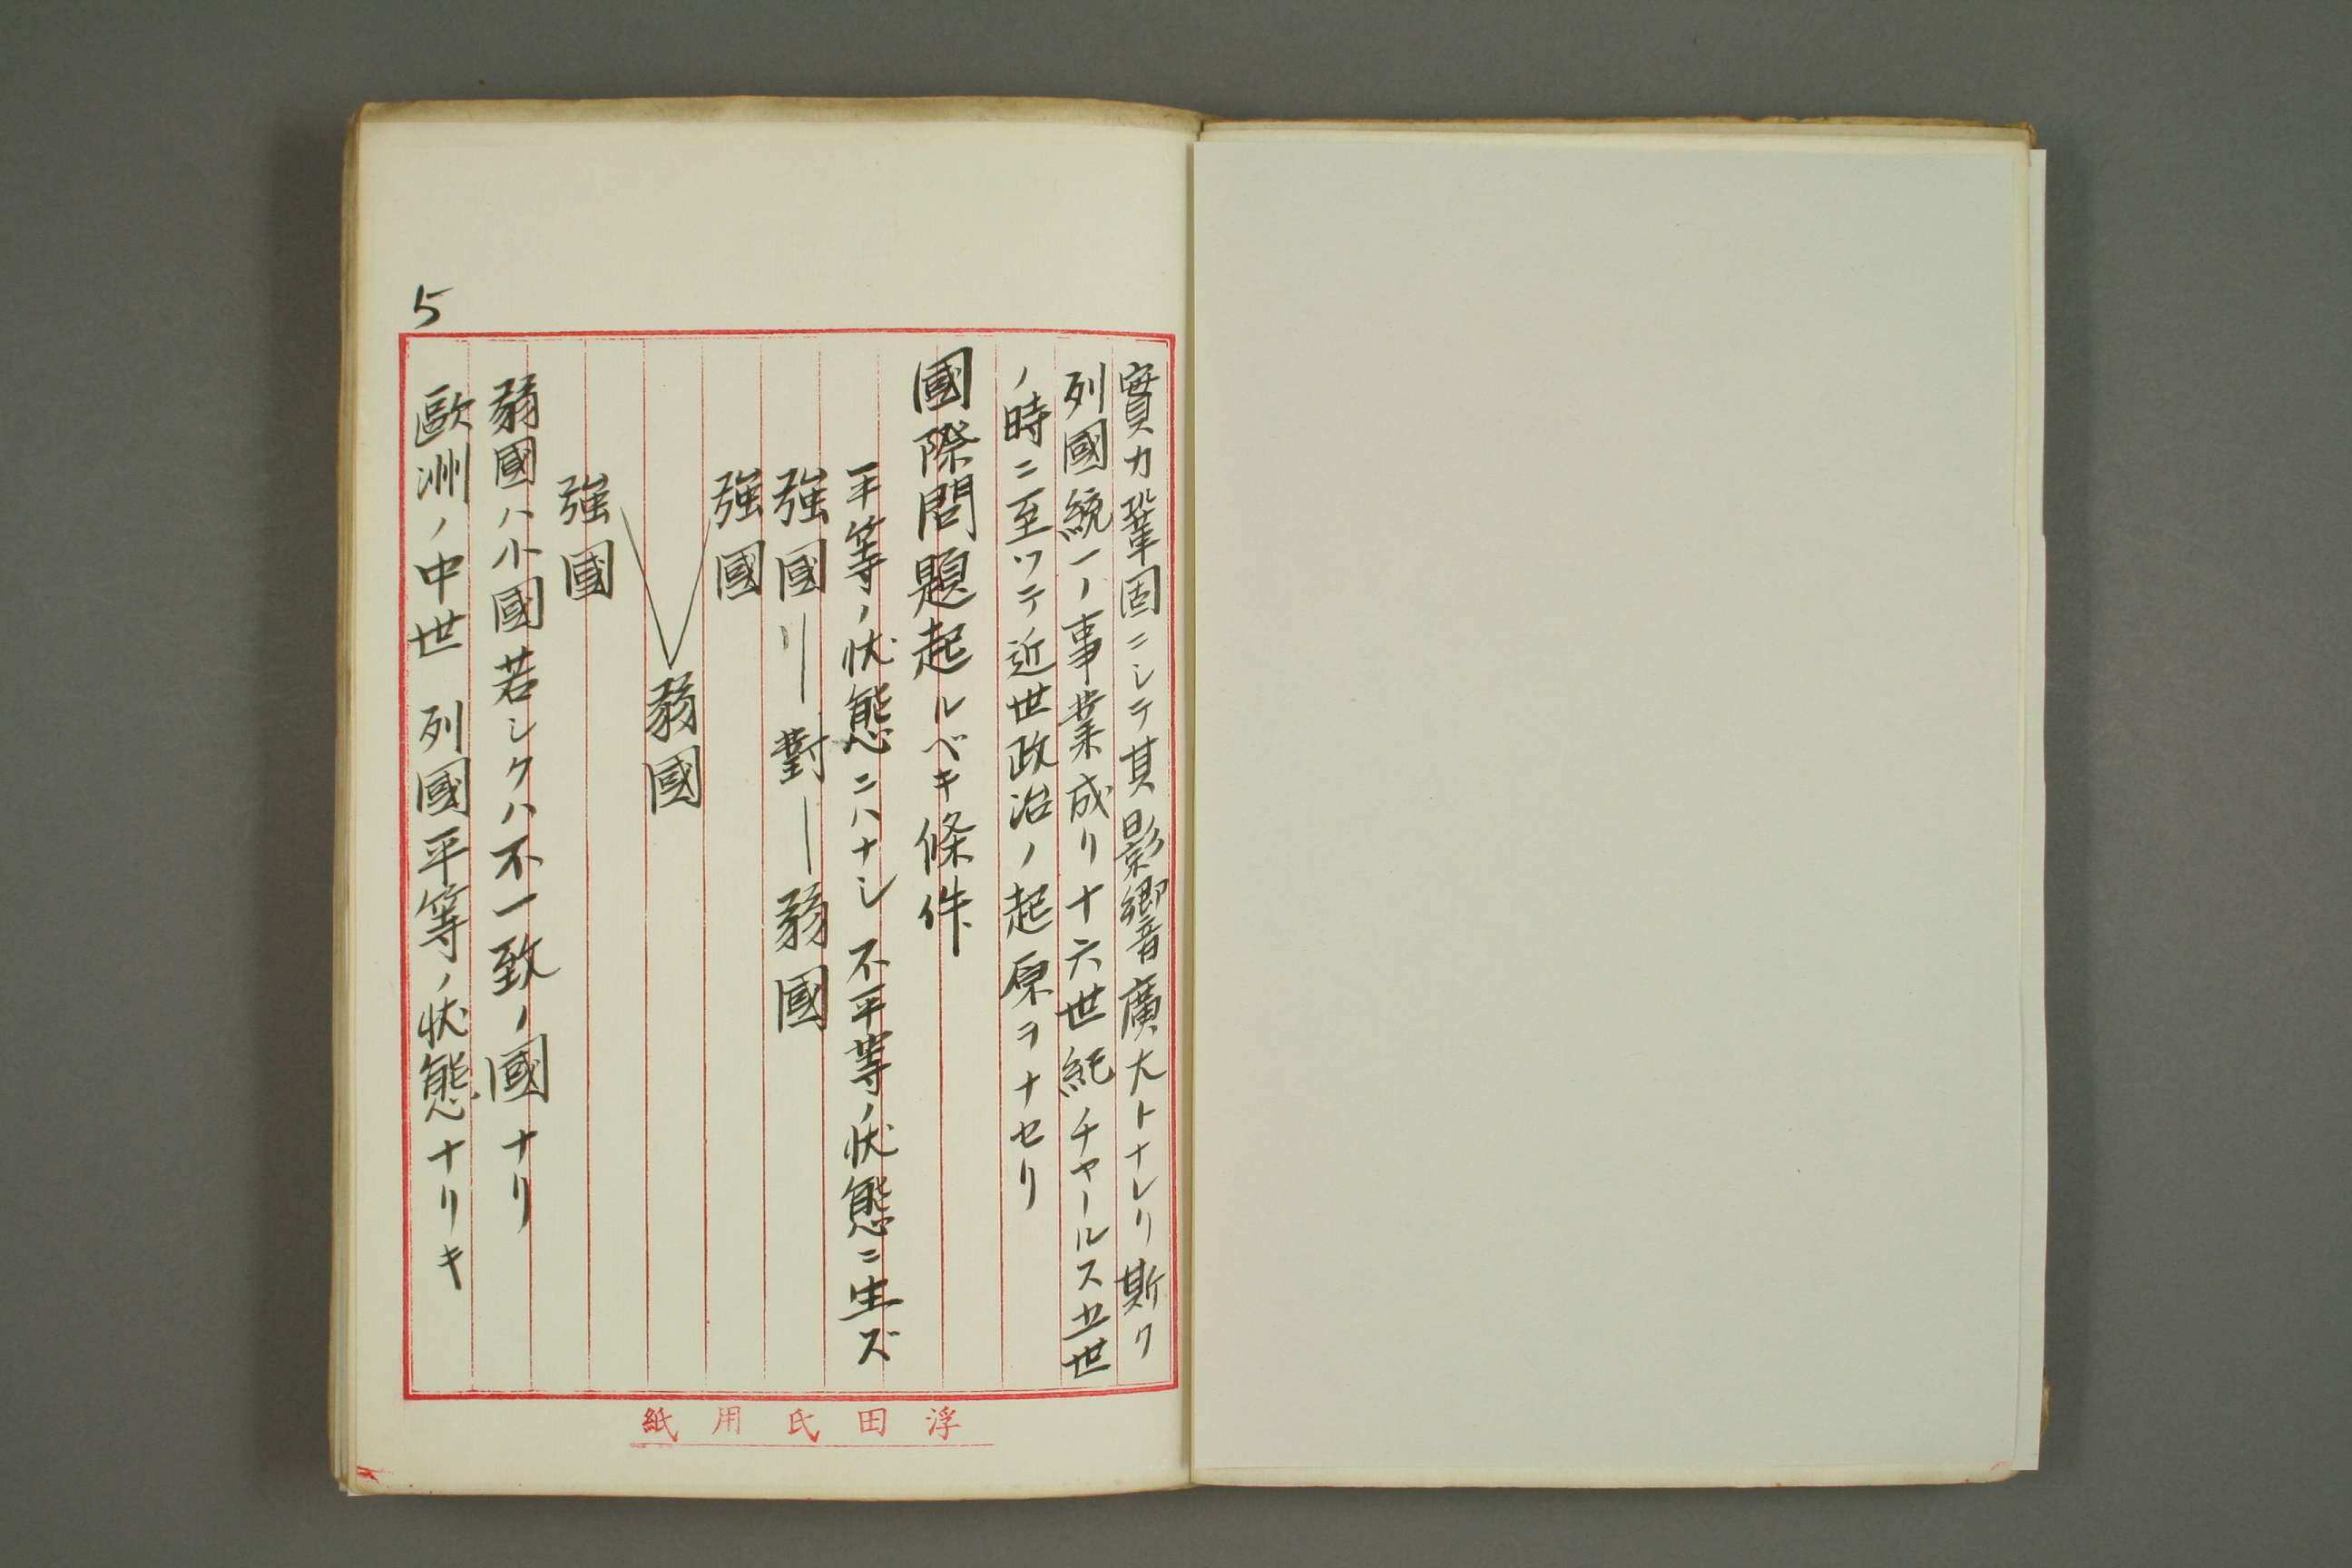 5
實力鞏固ニシテ其影響廣大トナレリ斯ク
列國統一ノ事業成リ十六世紀チャールス五世
ノ時ニ至ツテ近世政治ノ起原ヲナセリ
國際問題起ルベキ條件
平等ノ状態ニハナシ 不平等ノ状態ニ生ズ
強國 ― 對 ― 弱國
強國
弱國
強國
弱國ハ小國若シクハ不一致ノ國ナリ
歐洲ノ中世 列國平等ノ状態ナリキ
浮田氏用紙